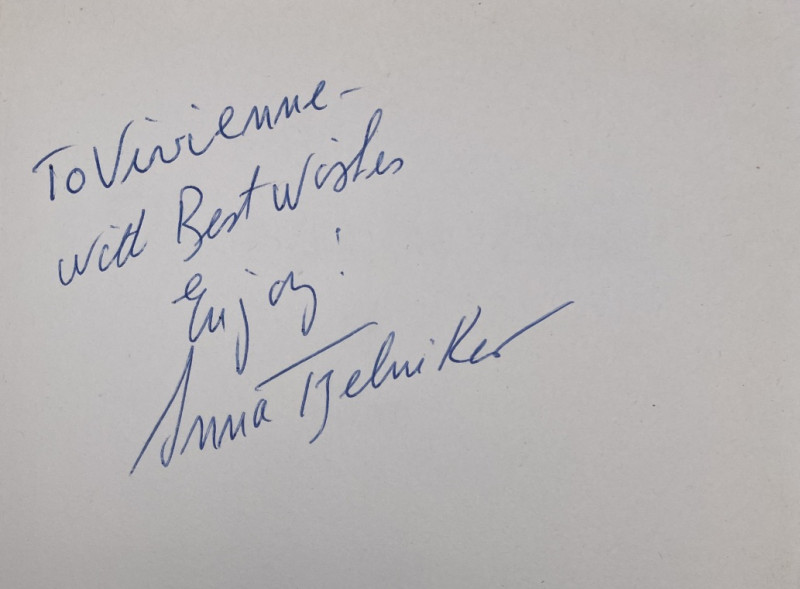 To Vivienne -
with Best Wishes
Enjoy!
Anna Tzelniker